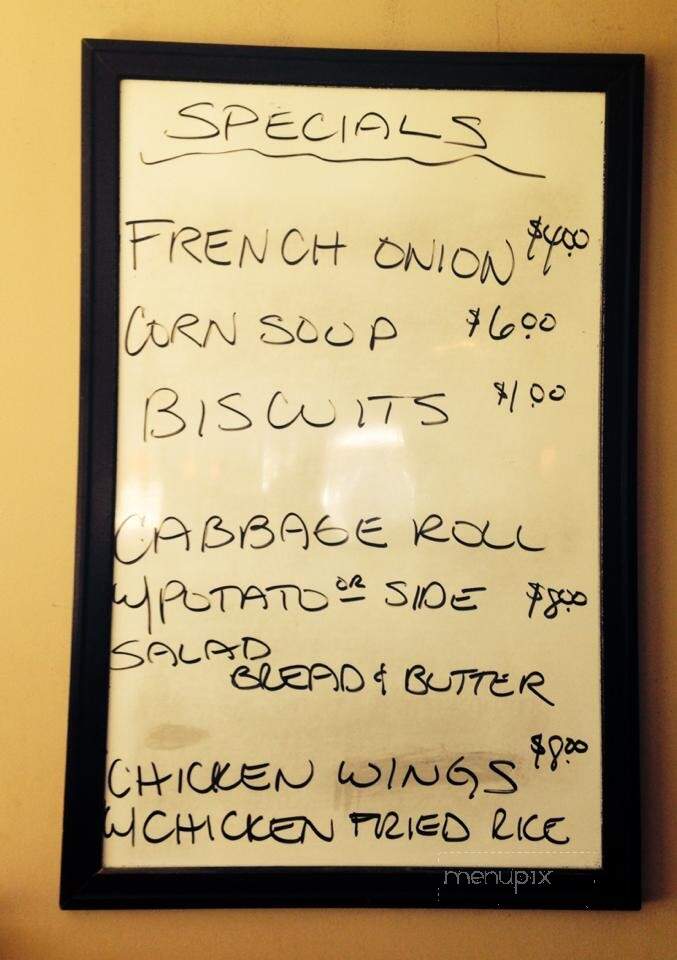 SPECIALS
FRENCH ONION $4.00
CORN SOUP $6.00
BISCUITS $1.00
CABBAGE ROLL
W/POTATO OR SIDE $8.00
SALAD
BREAD & BUTTER
CHICKEN WINGS $8.00
W/CHICKEN FRIED RICE
menupix